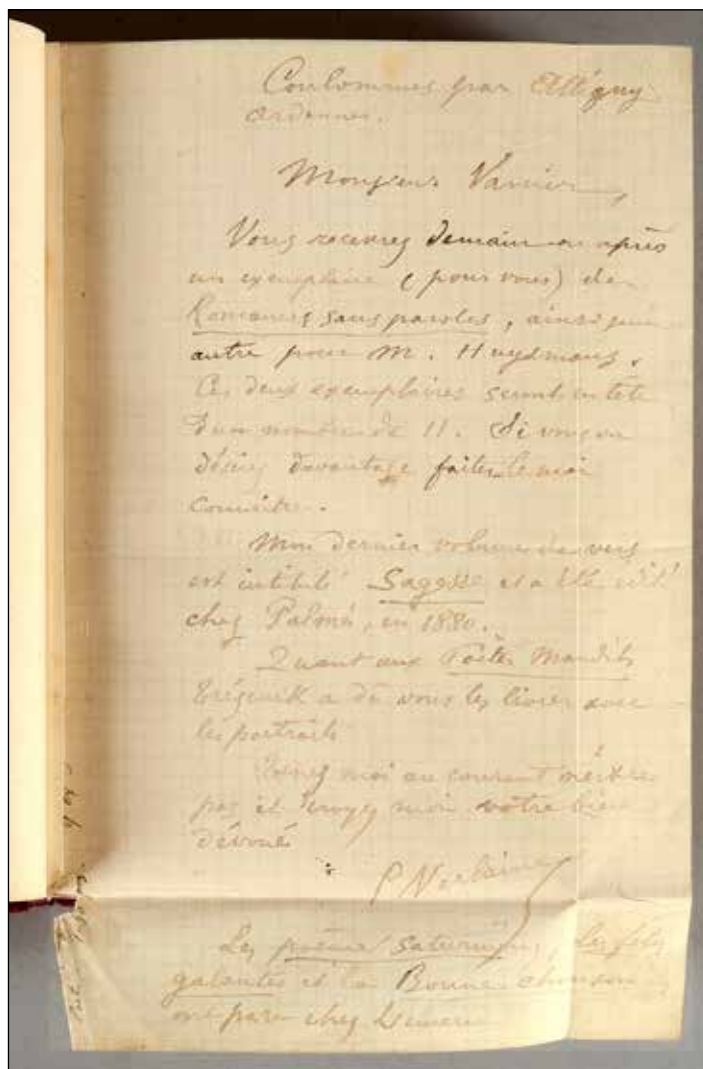 Coulommes par Attigny
Ardennes.
Monsieur Vanier,
Vous recevrez demain ou après
un exemplaire (pour vous) de
Romances sans paroles, ainsi qu'un
autre pour M. Huysmans.
Ces deux exemplaires seront en tête
d'un nombre de 11. Si vous en
désirez davantage faites le moi
connaître.
Mon dernier volume de vers
est intitulé Sagesse et a été édité
chez Palmé, en 1880.
Quant aux Poètes Maudits
Trézenik a dû vous les livrer avec
les portraits
Tenez moi au courant n'est-ce
pas et croyez moi votre bien
dévoué
P Verlaine
Les poèmes Saturniens, les fêtes
galantes et la Bonne chanson
ont paru chez Lemerre